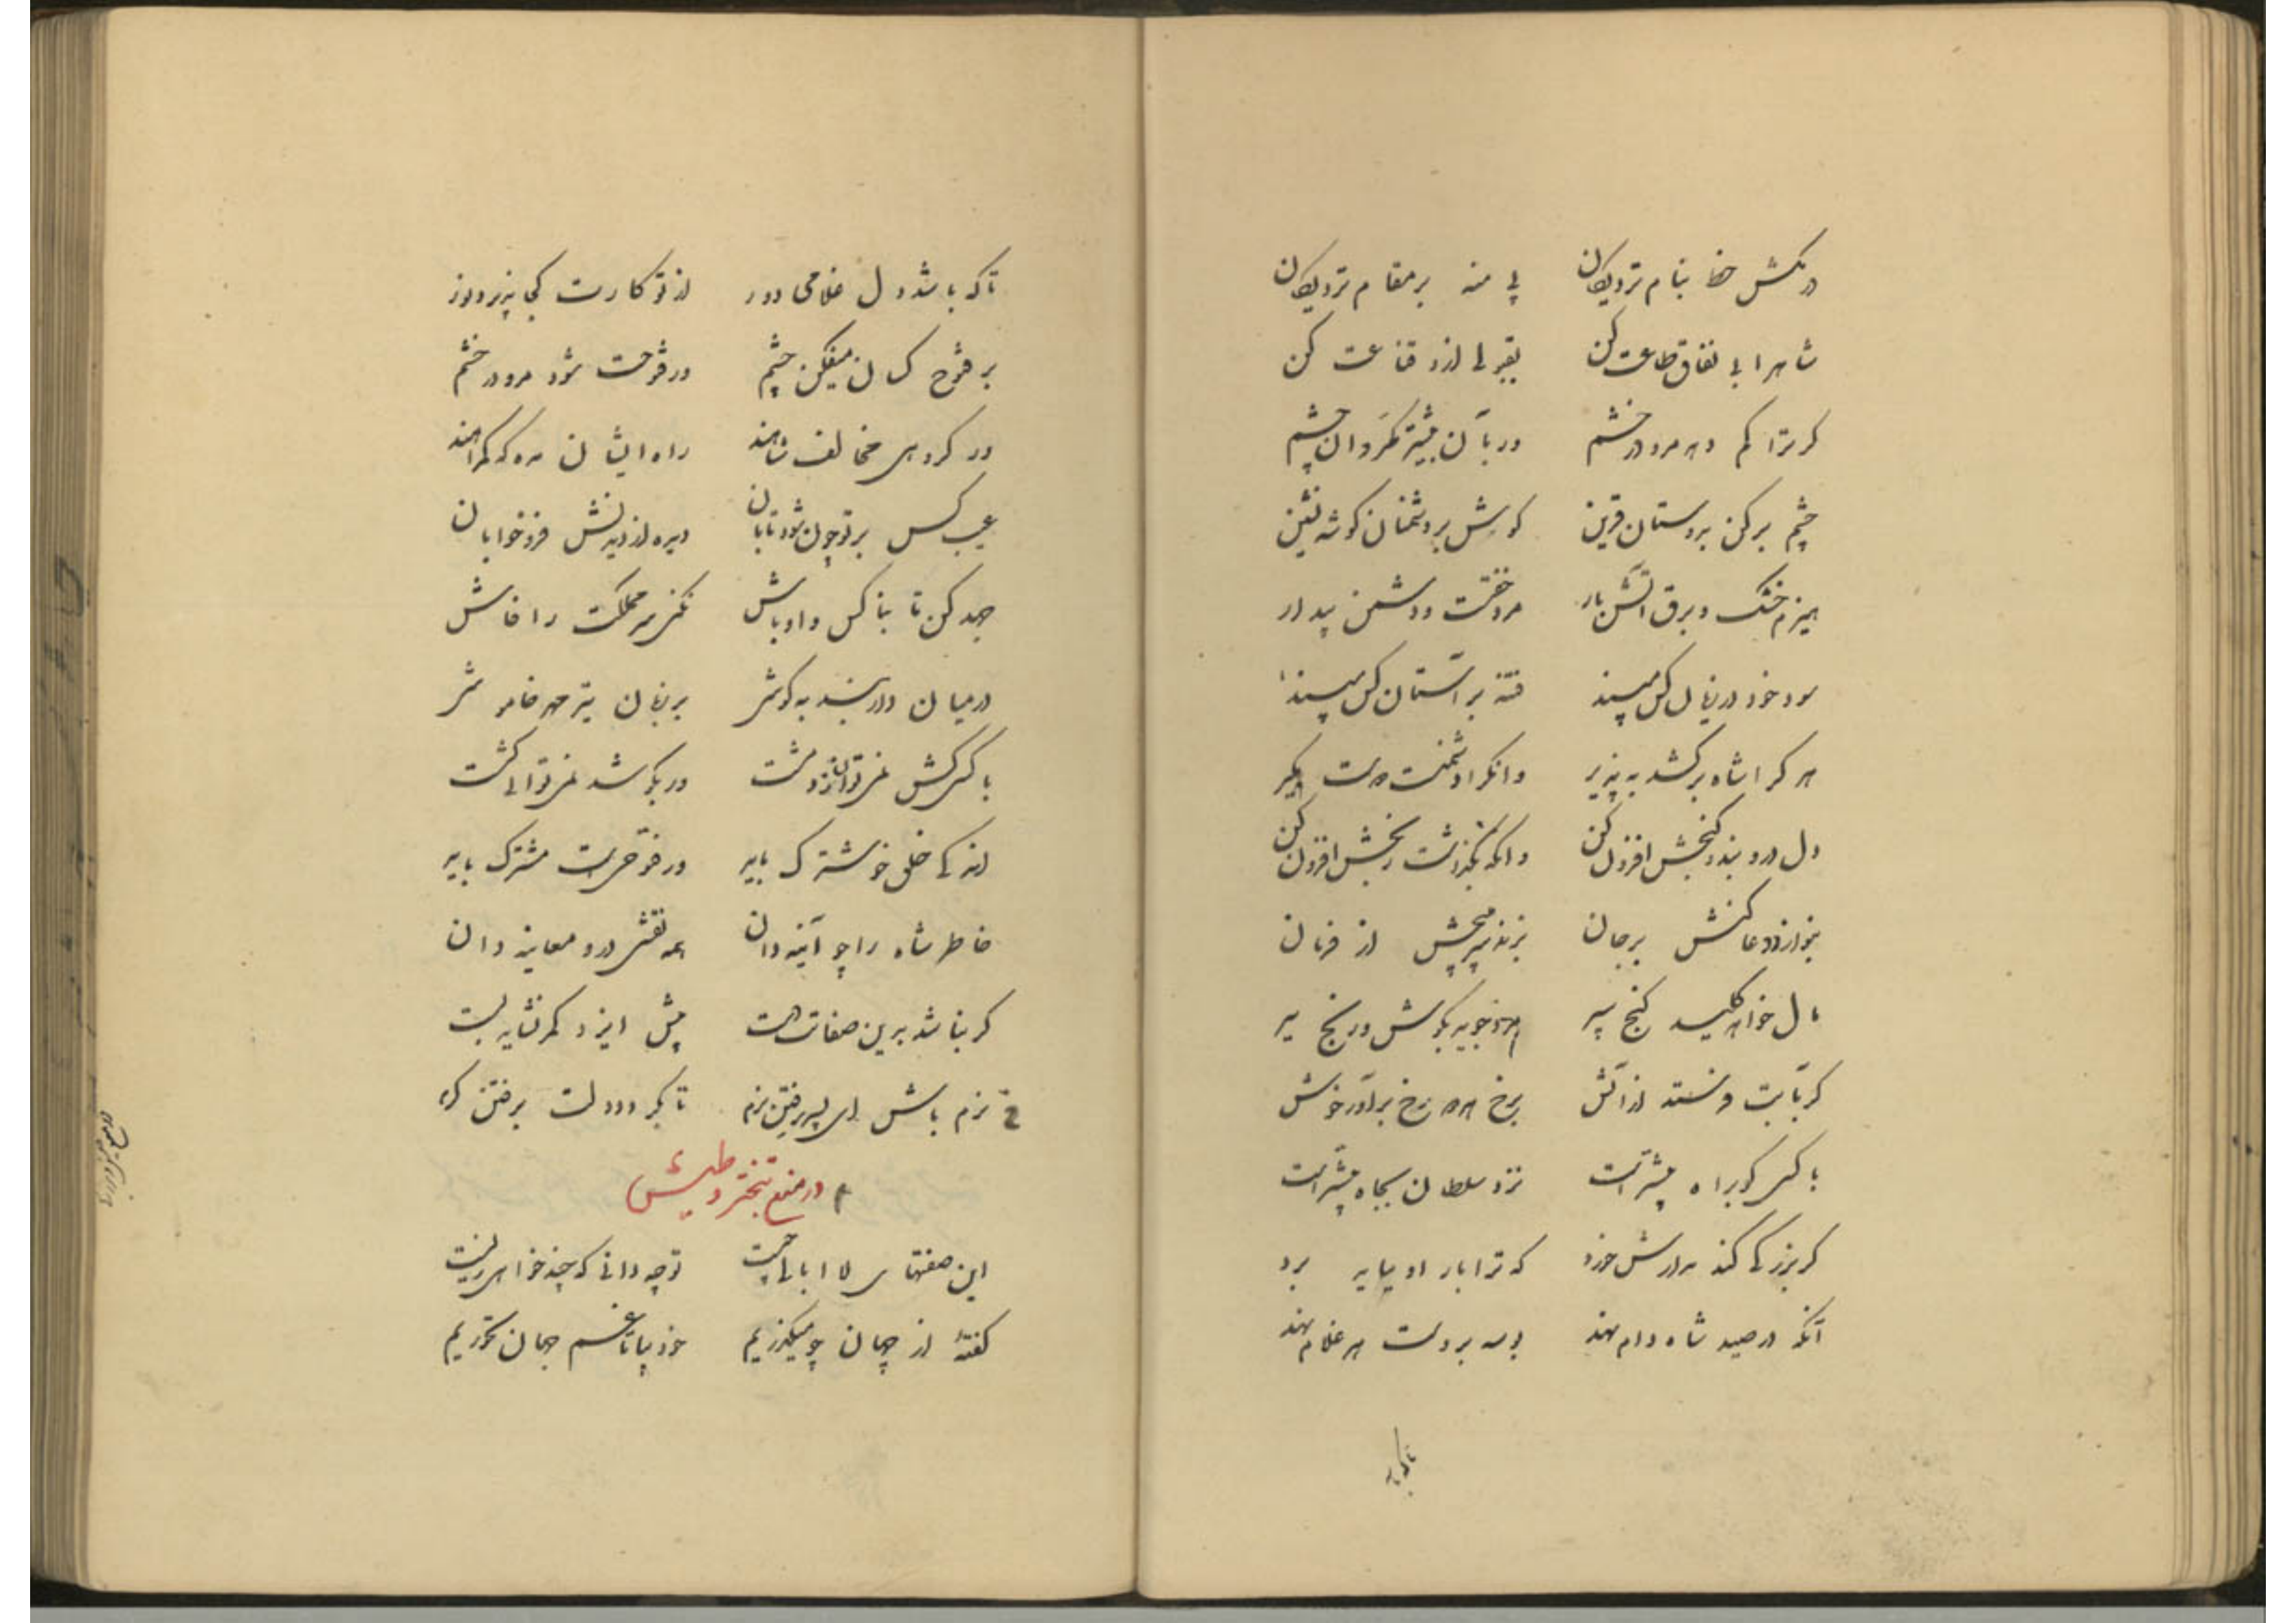 درمکش خط بنام نزدیکان پی منه بر مقام نزدیکان
شاه را بی نفاق طاعت کن بقبولی ازو قناعت کن
گر ترا کم دهد مرو در خشم ور بآن بیشتر مگردان چشم
چشم بر کن بدوستان قرین گوش بر دشمنان گوشه نشین
هیزم خشک و برق آتش بار مرد خفته و دشمن بیدار
سود خود در زیان کس مپسند فتنه بر آستان کس مپسند
هر کرا شاه برکشد بپذیر وانکه او دشمنست دوست مگیر
دل درو بندد گنجش افزون کن وانکه بگذاشت رنجش افزون کن
بنوازد دعا کنش بر جان بزند سر مپیچش از فرمان
مال خواهد کلید گنج ببر ور نجوید بکوش و رنج ببر
گر بآبت فرستد از آتش برخ هر دو رخ برآور خوش
با کسی کو براه بیشتر است نزد سلطان بجاه بیشتر است
گر بزرگی کند مدارش خرد که ترا بار او بباید برد
آنکه در صید شاه دام نهد بوسه بر دست هر غلام نهد
تا که با
تا که باشد دل غلامی دور از تو کارت کجا پذیرد نور
بر فتوح کسان میفکن چشم ور فتوحت شود مرو در خشم
در گروهی مخالف شاهند راه ایشان مده که گمراهند
عیب کس بر تو چون شود تابان دیده از دیدنش فرو خوابان
جهد کن تا بناکس و اوباش نکنی سر مملکت را فاش
در میان دار پند به گوش بر زبان نیز مهر خاموش
با کسی کش نمی‌توان زد مشت ور بکوشد نمی‌توانی کشت
اندکی خلق خوشترک باید ور فتوحیست مشترک باید
خاطر شاه را چو آینه دان همه نقشی درو معاینه دان
گر نباشد برین صفات هست پیش ایزد کمر نشاید بست
نرم باش ای پسر برفتن نرم تا نگردد دولت برفتن گرم
در منع تبختر و طیش
این صفتهای لاابالی چیست تو چه دانی که چند خواهی زیست
گفتهٔ از جهان چو میگذریم خود بیا تا غم جهان نخوریم